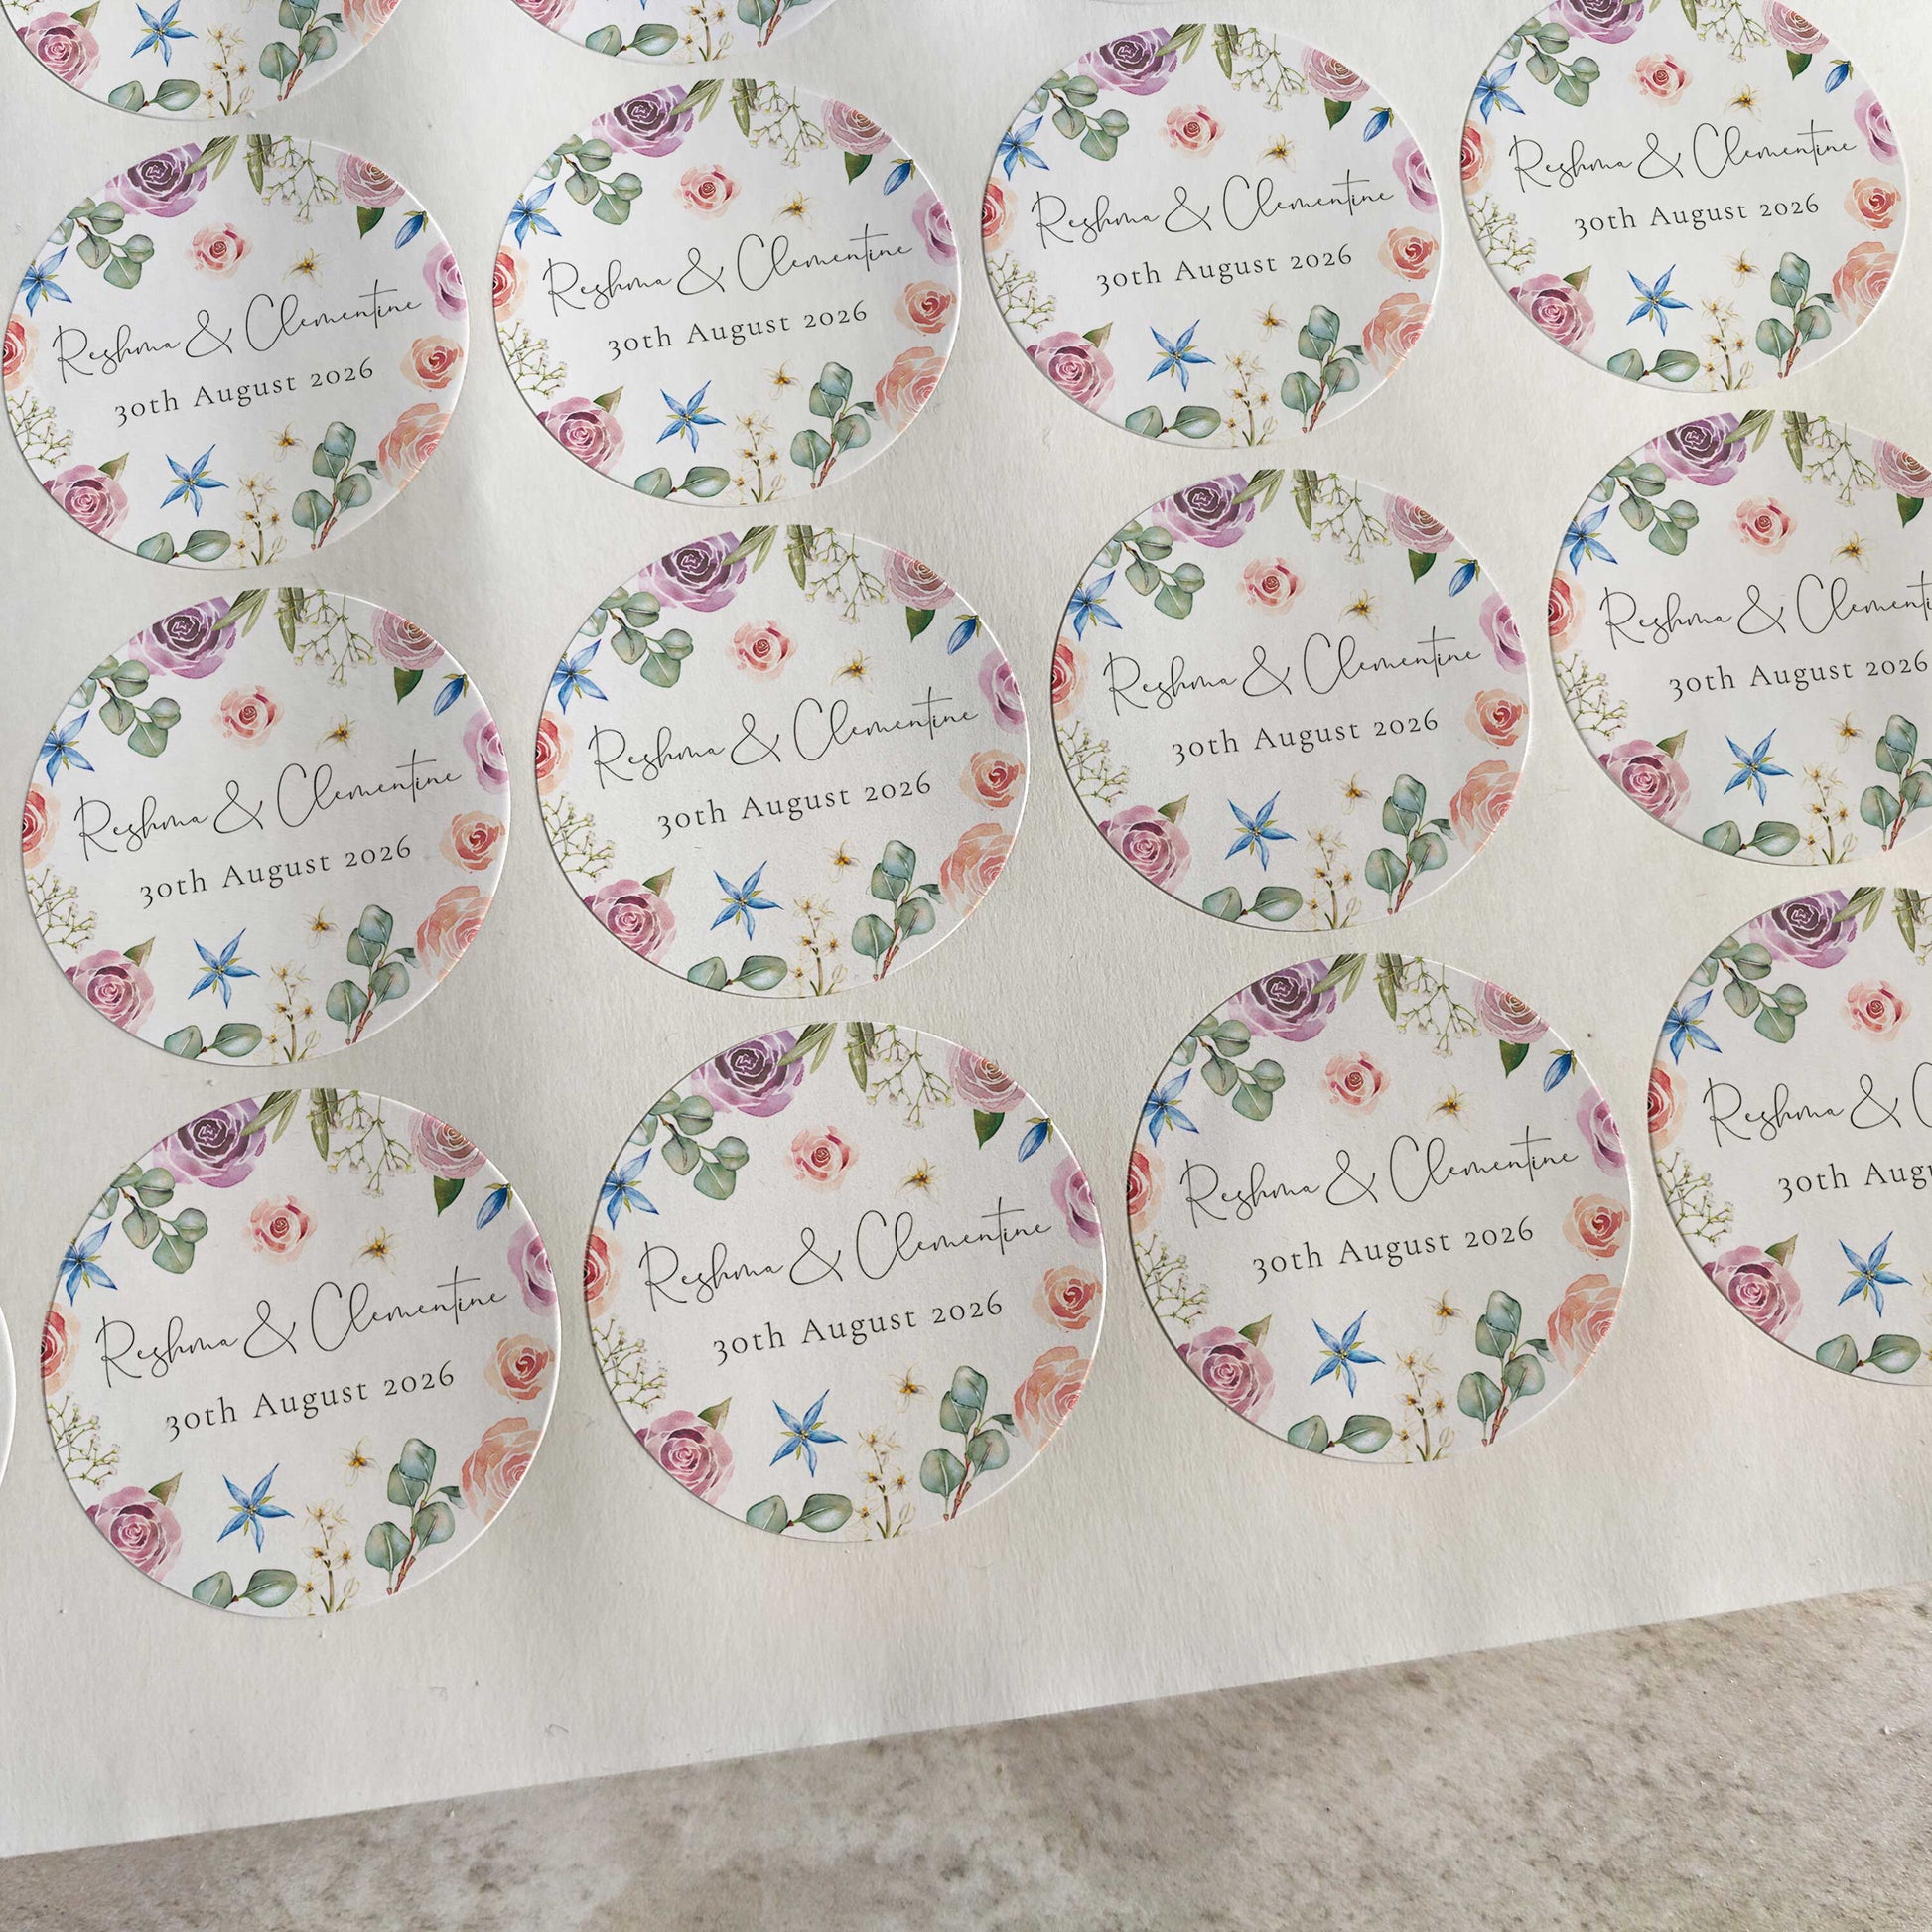 Reshma & Clementine
30th August 2026
Reshma & Clementine
30th August 2026
Reshma & Clementine
30th August 2026
Reshma & Clementine
30th August 2026
Reshma & Clementine
30th August 2026
Reshma & Clementine
30th August 2026
Reshma & Clementine
30th August 2026
Reshma & Clementi
30th August 2026
Reshma & Clementine
30th August 2026
Reshma & Clementine
30th August 2026
Reshma & Clementine
30th August 2026
Reshma & C
30th Augu